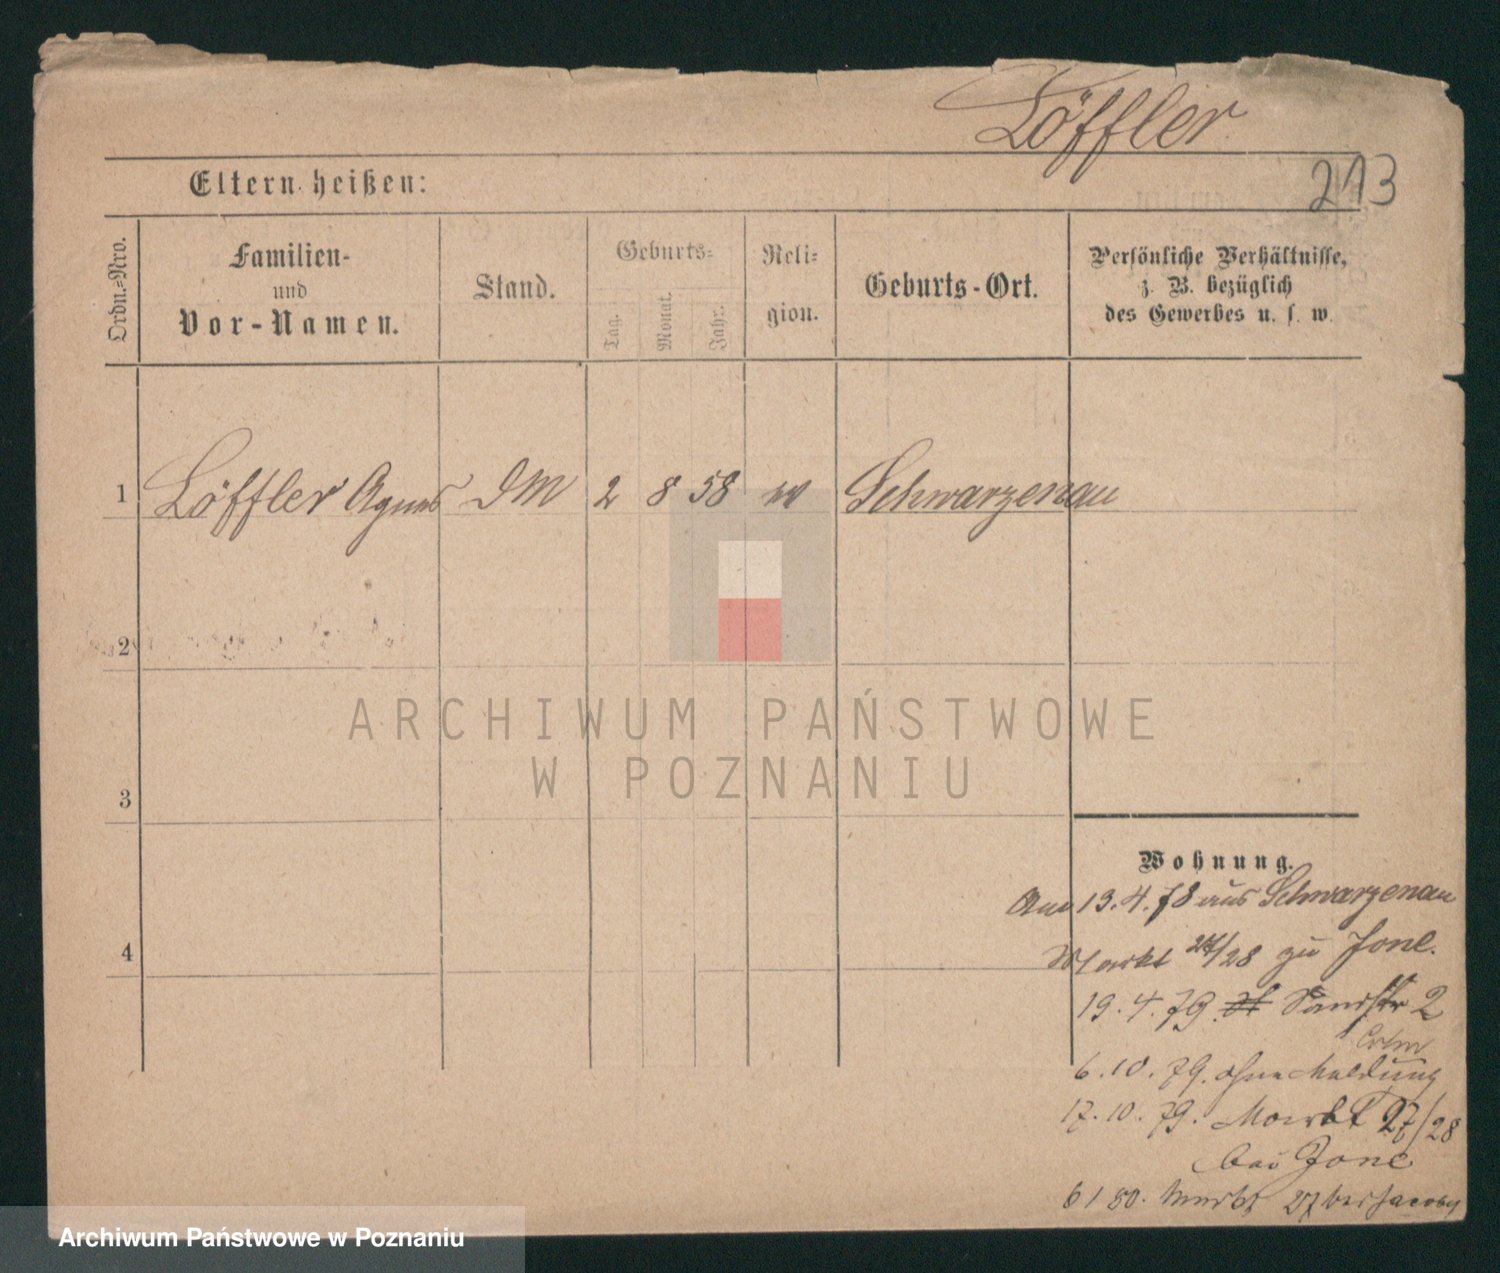 Löffler
213
Eltern heißen:
Ordn.-Nro.
Familien-
und
Vor-Namen.
Stand.
Geburts-
Tag.
Monat.
Jahr.
Reli-
gion.
Geburts-Ort.
Persönliche Verhältnisse,
z. B. bezüglich
des Gewerbes u. s. w.
1 Löffler Agnes DM 2 8 58 Schwarzenau
2
3
4
Wohnung.
13.4.78 aus Schwarzenau
Markt 27/28 zu Jone.
19.4.79 Sandstr 2
6.10.79. ohne Meldung
17.10.79. Markt 27/28
bei Jone
6 1 80. Markt 27 bei Jacoby
ARCHIWUM PAŃSTWOWE
W POZNANIU
Archiwum Państwowe w Poznaniu